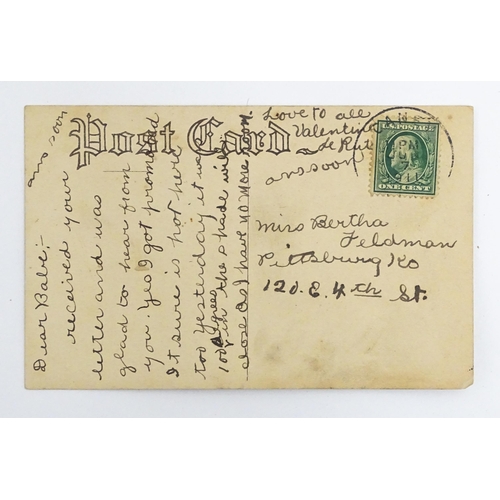 Post Card
ans soon
Dear Babe;-
received your
letter and was
glad to hear from
you. Yes I got promoted
It sure is hot here
too Yesterday it was
100 degrees in the shade will
close as I have no more room
Love to all
Valentine
ans soon
U.S. POSTAGE
ONE CENT
PM
Miss Bertha
Feldman
Pittsburg Ko
120. E. 4th St.